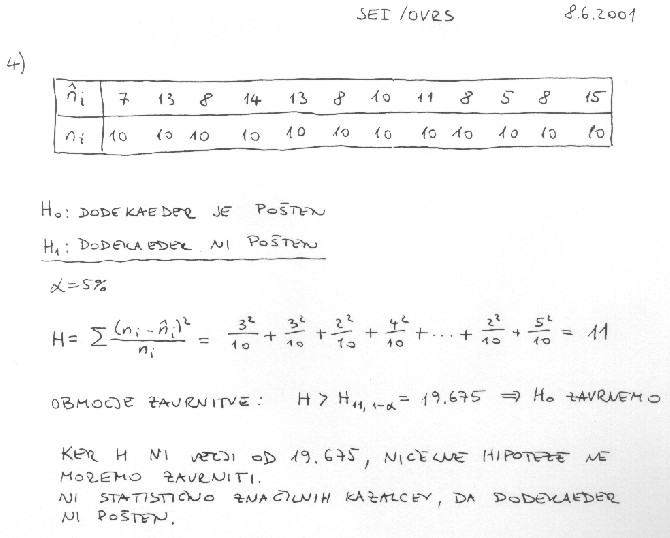 SEI /OVRS 8.6.2001
4)
n̂i 7 13 8 14 13 8 10 11 8 5 8 15
ni 10 10 10 10 10 10 10 10 10 10 10 10
H₀: DODEKAEDER JE POŠTEN
H₁: DODEKAEDER NI POŠTEN
α=5%
H = Σ (ni - n̂i)²/ni = 3²/10 + 3²/10 + 2²/10 + 4²/10 + ... + 2²/10 + 5²/10 = 11
OBMOČJE ZAVRNITVE: H > H₁₁,₁₋α = 19.675 ⇒ H₀ ZAVRNEMO
KER H NI VEČJI OD 19.675, NIČELNE HIPOTEZE NE
MOREMO ZAVRNITI.
NI STATISTIČNO ZNAČILNIH KAZALCEV, DA DODEKAEDER
NI POŠTEN.